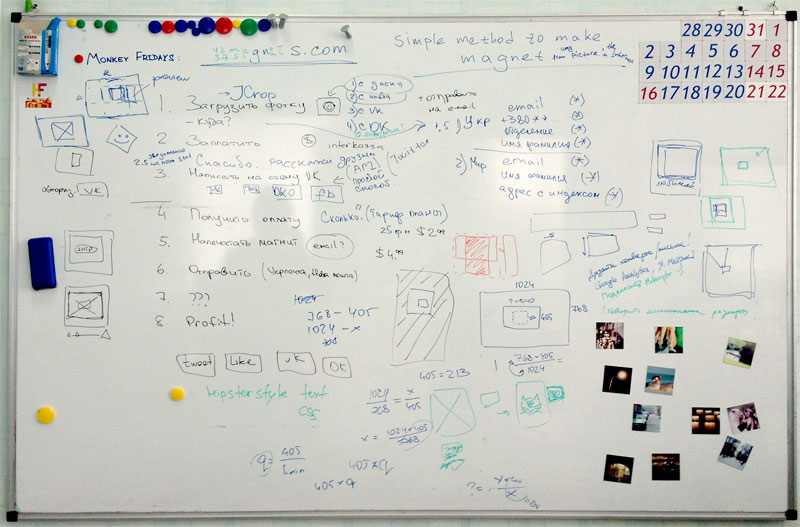 MONKEY FRIDAYS:
s.com
Simple method to make
magnet
from picture in the Internet
28 29 30 31 1
2 3 4 5 6 7 8
9 10 11 12 13 14 15
16 17 18 19 20 21 22
preview
→ JCrop
1. Загрузить фотку
- куда?
1) С диска
3) С VK
4) OK
+ отправить
на email
1,5) Укр
email (*)
+380 **
отделение (*)
имя фамилия (*)
2. Заплатить
$ interkassa
2) Мир
email (*)
Имя фамилия (*)
адрес с индексом (*)
Спасибо: расскажи друзьям
API
Twitter
3. Написать на стену VK
способ
fb
VK
4. Получить оплату
Сколько? (Тариф планы)
25 грн $2.99
$4.99
5. Напечатать магнит
email?
6. Отправить (Укрпочта, Нова пошта)
7. ???
8. Profit!
1024
768 - 405
1024 - x
tweet
Like
VK
OK
hipster style text
CSS
любимой
Google Analytics, Я. Метрика
1024
768
405
405 = 213
768 - 405
1024
1024
768
=
x
405
x = 1024 x 405
768
q = 405
1 min
405 x q
405 x q